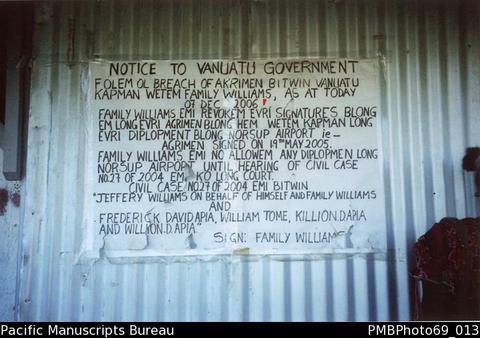 NOTICE TO VANUATU GOVERNMENT
FOLEM OL BREACH OF AKRIMEN BITWIN VANUATU
KAPMAN WETEM FAMILY WILLIAMS, AS AT TODAY
07 DEC 2006.
FAMILY WILLIAMS EMI REVOKEM EVRI SIGNATURES BLONG
EM LONG EVRI AGRIMEN BLONG HEM WETEM KAPMAN LONG
EVRI DIPLOPMENT BLONG NORSUP AIRPORT ie-
AGRIMEN SIGNED ON 19TH MAY 2005.
FAMILY WILLIAMS EMI NO ALLOWEM ANY DIPLOPMEN LONG
NORSUP AIRPORT UNTIL HEARING OF CIVIL CASE
NO.27 OF 2004 EMI KO LONG COURT.
CIVIL CASE NO.27 OF 2004 EMI BITWIN
"JEFFERY WILLIAMS ON BEHALF OF HIMSELF AND FAMILY WILLIAMS
AND
FREDERICK DAVID APIA, WILLIAM TOME, KILLION.D.APIA
AND WILLION.D.APIA"
SIGN: FAMILY WILLIAMS
Pacific Manuscripts Bureau PMBPhoto69_013